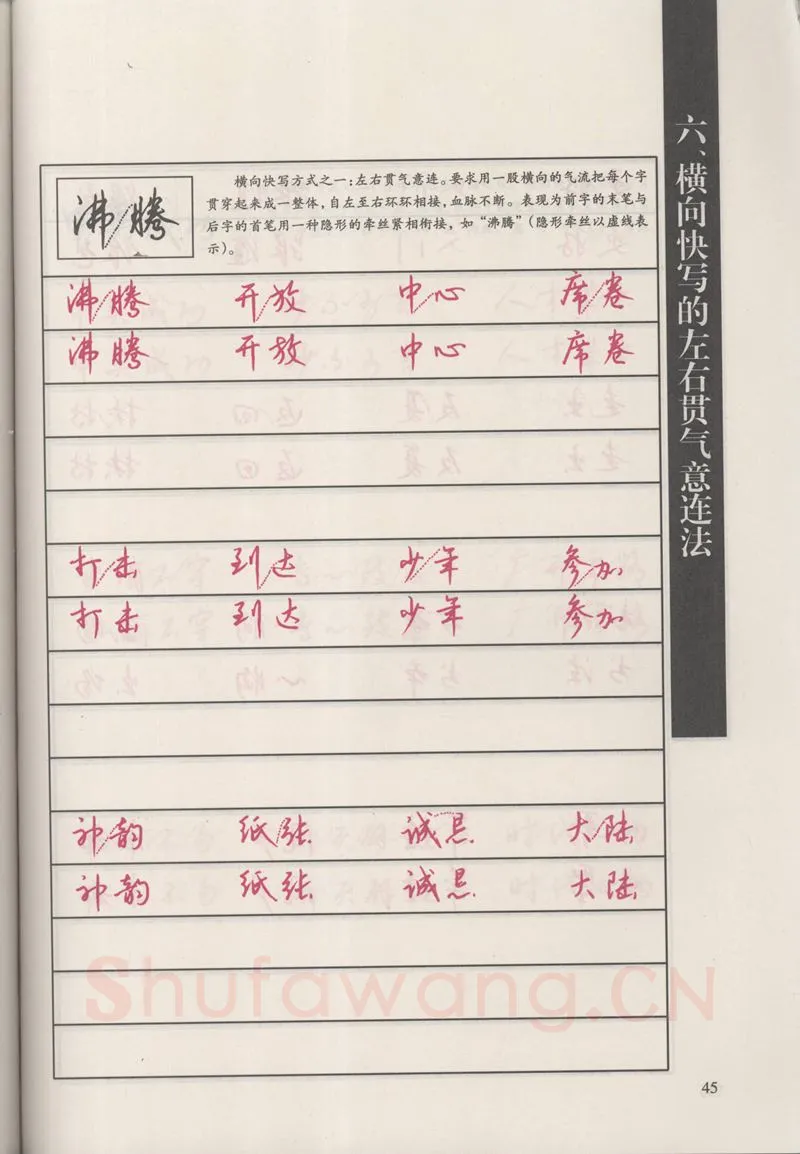 六、横向快写的左右贯气意连法
沸腾
横向快写方式之一：左右贯气意连。要求用一股横向的气流把每个字
贯穿起来成一整体，自左至右环环相接，血脉不断。表现为前字的末笔与
后字的首笔用一种隐形的牵丝紧相衔接，如“沸腾”（隐形牵丝以虚线表
示）。
沸腾 开放 中心 席卷
沸腾 开放 中心 席卷
打击 到达 少年 参加
打击 到达 少年 参加
神韵 纸张 诚恳 大陆
神韵 纸张 诚恳 大陆
Shufawang.CN
45